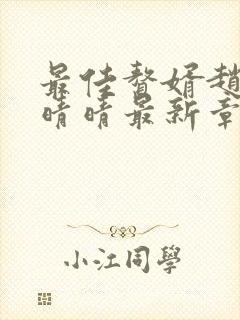 最佳贅婿趙
晴晴最新章
小江同學